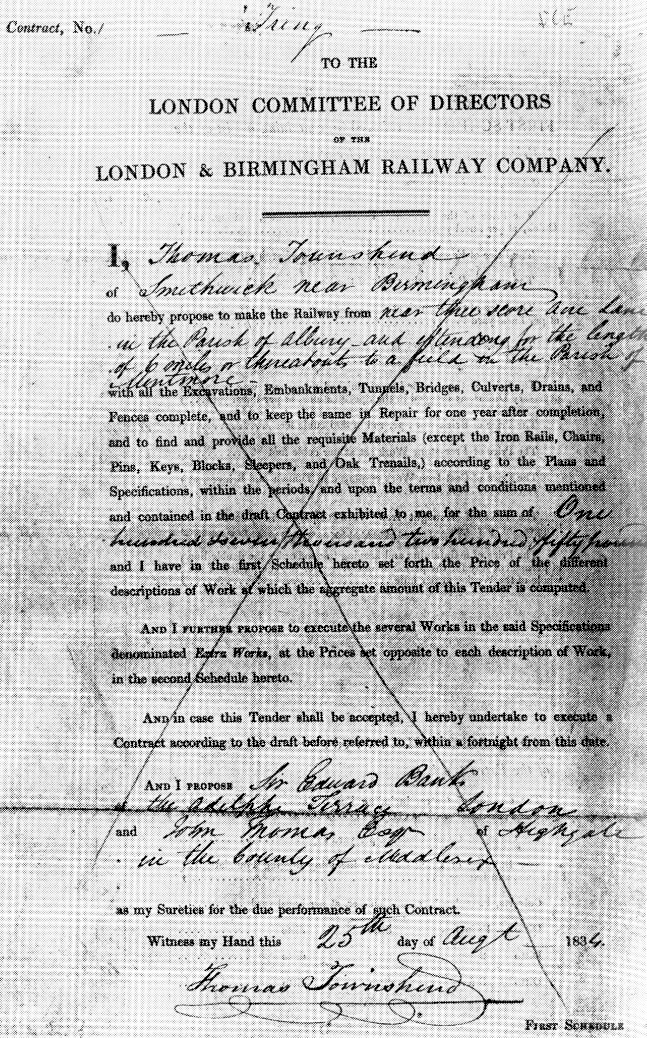 Contract, No. / — "Tring —
TO THE
LONDON COMMITTEE OF DIRECTORS
OF THE
LONDON & BIRMINGHAM RAILWAY COMPANY.
I, Thomas Townshend
of Smethwick near Birmingham
do hereby propose to make the Railway from near three score
in the Parish of Albury and extending for the length
of 6 miles or thereabouts to a field in the Parish of
Mentmore –
with all the Excavations, Embankments, Tunnels, Bridges, Culverts, Drains, and
Fences complete, and to keep the same in Repair for one year after completion,
and to find and provide all the requisite Materials (except the Iron Rails, Chairs,
Pins, Keys, Blocks, Sleepers, and Oak Trenails,) according to the Plans and
Specifications, within the periods, and upon the terms and conditions mentioned
and contained in the draft Contract exhibited to me, for the sum of One
hundred seven thousand two hundred fifty
and I have in the first Schedule hereto set forth the Price of the different
descriptions of Work at which the aggregate amount of this Tender is computed.
AND I FURTHER PROPOSE to execute the several Works in the said Specifications
denominated Extra Works, at the Prices set opposite to each description of Work,
in the second Schedule hereto.
AND in case this Tender shall be accepted, I hereby undertake to execute a
Contract according to the draft before referred to, within a fortnight from this date.
AND I PROPOSE Sir Edward Banks
the Adelphi Terrace London
and John Thomas Esqr of Highgate
in the County of Middlesex –
as my Sureties for the due performance of such Contract.
Witness my Hand this 25th day of Augt 1834.
Thomas Townshend
FIRST SCHEDULE